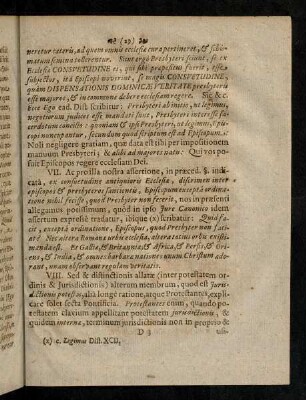 ❧ (29) ❧
neretur ceteris, ad quem omnis ecclesiæ cura pertineret, & schis-
matum semina tollerentur. Sicut ergo Presbyteri sciunt, se ex
Ecclesiæ CONSVETUDINE ei, qui sibi propositus fuerit, esse
subjectos, ita Episcopi noverint, se magis CONSVETUDINE,
quàm DISPENSATIONIS DOMINICÆ VERITATE presbyteris
esse majores, & in commune debere ecclesiam regere. Sic & c.
Ecce Ego ead. Dist. scribitur: Presbyteri ab initio, ut legimus,
negotiorum judices esse mandati sunt; Presbyteri interesse sa-
cerdotum consiliis: quoniam & ipsi Presbyteri, ut legimus, Epi-
scopi nuncupantur, secundum quod scriptum est ad Episcopum:
Noli negligere gratiam, quæ data est tibi per impositionem
manuum Presbyterii; & alibi ad majores natu: Qui vos po-
suit Episcopos regere ecclesiam Dei.
VII. Ac proillâ nostrâ assertione, in præced. §. indi-
catâ, ex consuetudine antiquioris Ecclesiæ, discrimen inter
episcopos & presbyteros sanciente, Episcopum exceptâ ordina-
tione nihil fecisse, quod Presbyter non fecerit, nos in præsenti
allegamus potissimum, quod in ipso Jure Canonico idem
assertum expressè tradatur, ibique (x) scribatur: Quid fa-
cit, exceptâ ordinatione, Episcopus, quod Presbyter non faci-
at? Nec altera Romana urbis ecclesia, altera totius orbis existi-
manda est. Et Gallia, & Britannia, & Africa, & Persis, & Ori-
ens, & India, & omnes barbaræ nationes unum Christum ado-
rant, unam observant regulam veritatis.
VIII. Sed & distinctionis allatæ (inter potestatem or-
dinis & Jurisdictionis) alterum membrum, quod est Juris-
dictionis potestas, aliâ longè ratione, atque Protestantes, expli-
care solet secta Pontificia. Protestantes enim, quando po-
testatem clavium appellitant potestatem jurisdictionis, &
quidem internæ, terminum jurisdictionis non in proprio &
D 3
(x) c. Legimus Dist. XCIII.